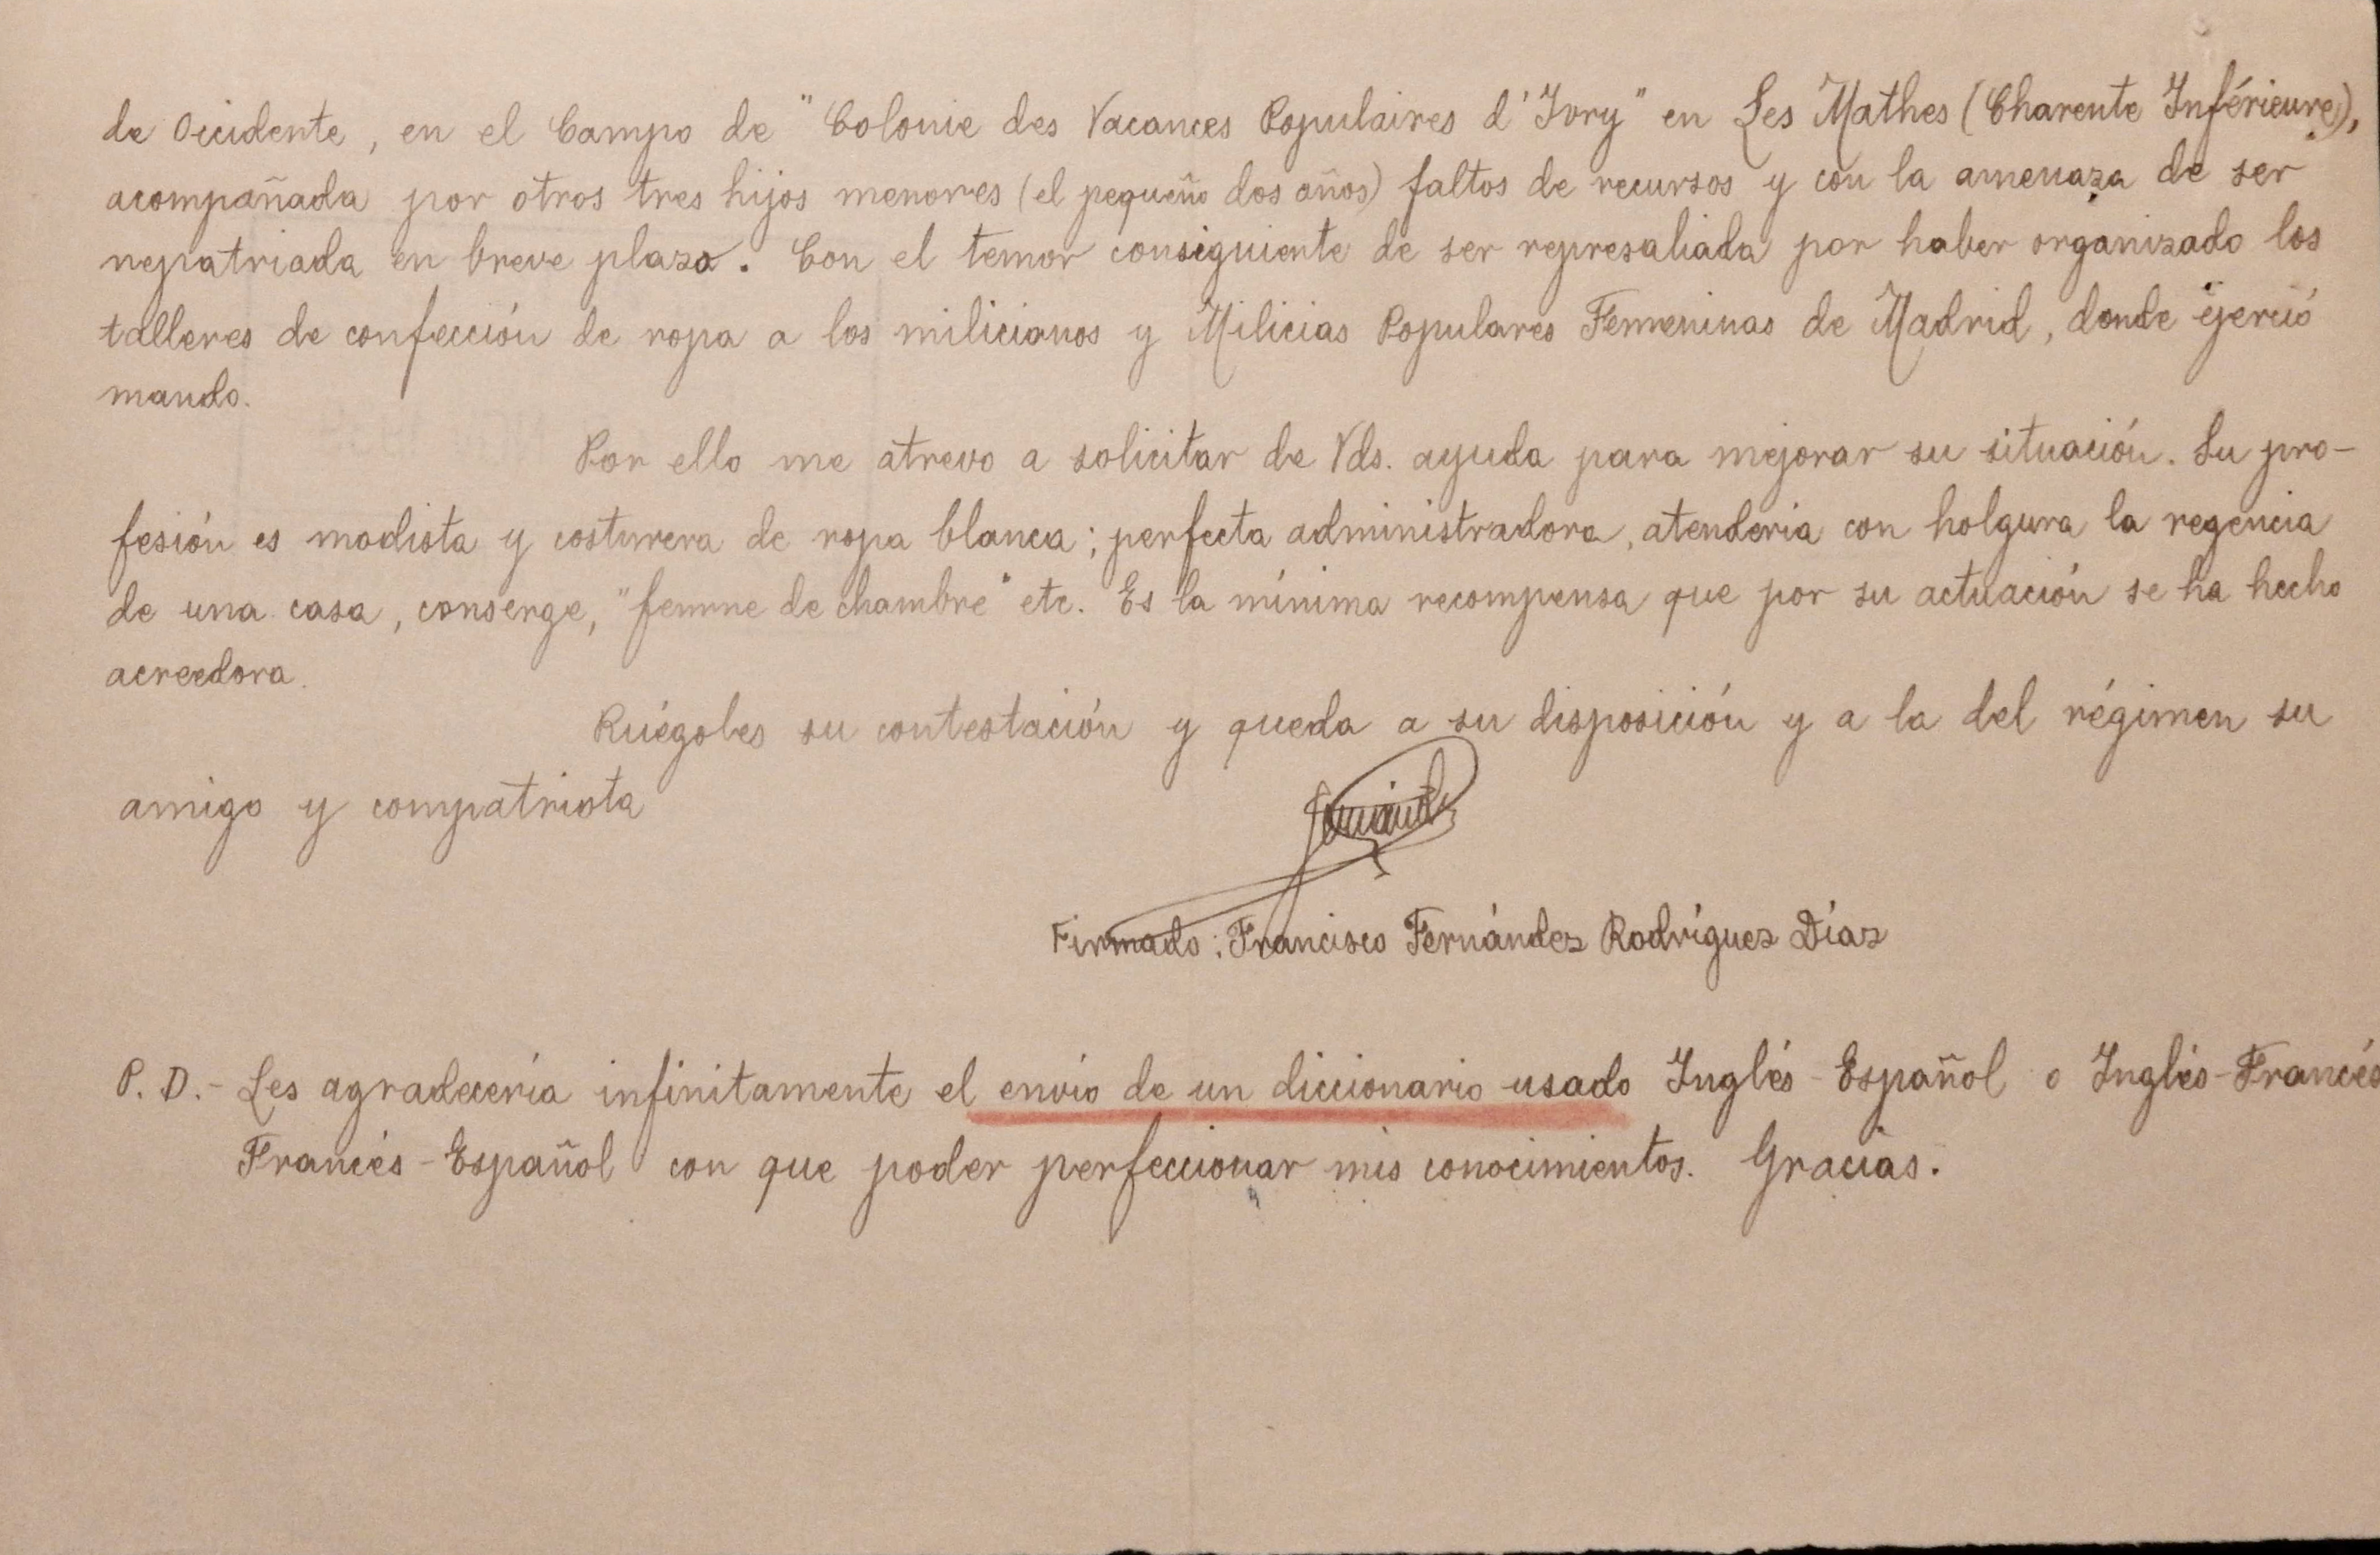 de Occidente, en el Campo de "Colonie des Vacances Populaires d'Ivry" en Les Mathes (Charente Inférieure),
acompañada por otros tres hijos menores (el pequeño dos años) faltos de recursos y con la amenaza de ser
repatriada en breve plazo. Con el temor consiguiente de ser represaliada por haber organizado los
talleres de confección de ropa a los milicianos y Milicias Populares Femeninas de Madrid, donde ejerció
mando.
Por ello me atrevo a solicitar de Vds. ayuda para mejorar su situación. Su pro-
fesión es modista y costurera de ropa blanca; perfecta administradora, atenderia con holgura la regencia
de una casa, conserge, "femme de chambre" etc. Es la mínima recompensa que por su actuación se ha hecho
acreedora.
Ruégoles su contestación y queda a su disposición y a la del régimen su
amigo y compatriota
Firmado: Francisco Fernández Rodríguez Díaz
P. D.- Les agradecería infinitamente el envío de un diccionario usado Inglés-Español o Inglés-Francés
Francés-Español con que poder perfeccionar mis conocimientos. Gracias.